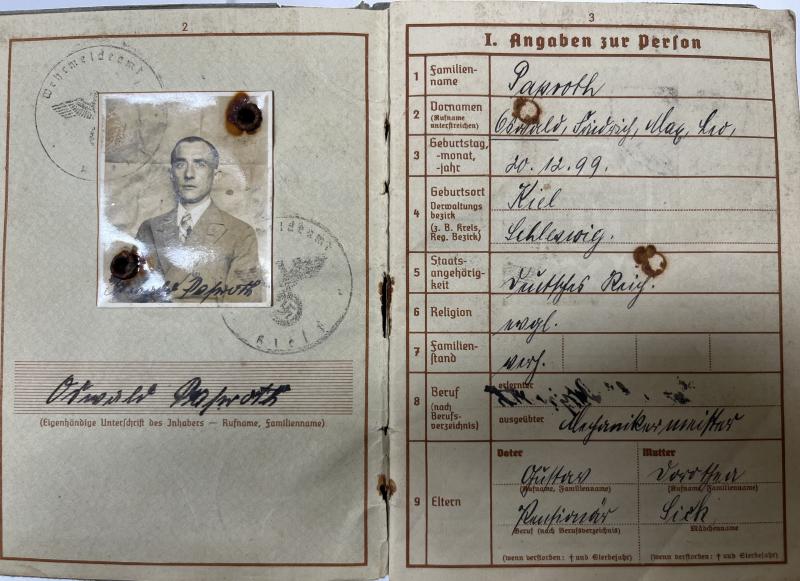 2
Wehrmeldeamt
Kiel
Oswald Paproth
(Eigenhändige Unterschrift des Inhabers — Rufname, Familienname)
3
I. Angaben zur Person
1 Familien-
name
Paproth
2 Vornamen
(Rufname
unterstreichen)
Oswald, Friedrich, Max, Leo,
3 Geburtstag,
-monat,
-jahr
20.12.99.
4 Geburtsort
Verwaltungs
bezirk
(z. B. Kreis,
Reg. Bezirk)
Kiel
Schleswig.
5 Staats-
angehörig-
keit
Deutsches Reich.
6 Religion
evgl.
7 Familien-
stand
verh.
8 Beruf
(nach
Berufs-
verzeichnis)
erlernter
ausgeübter Mechanikermeister
9 Eltern
Vater
Gustav
(Rufname, Familienname)
Pensionär
Beruf (nach Berufsverzeichnis)
(wenn verstorben: † und Sterbejahr)
Mutter
Dorothea
(Rufname, Familienname)
Sick
Mädchenname
(wenn verstorben: † und Sterbejahr)